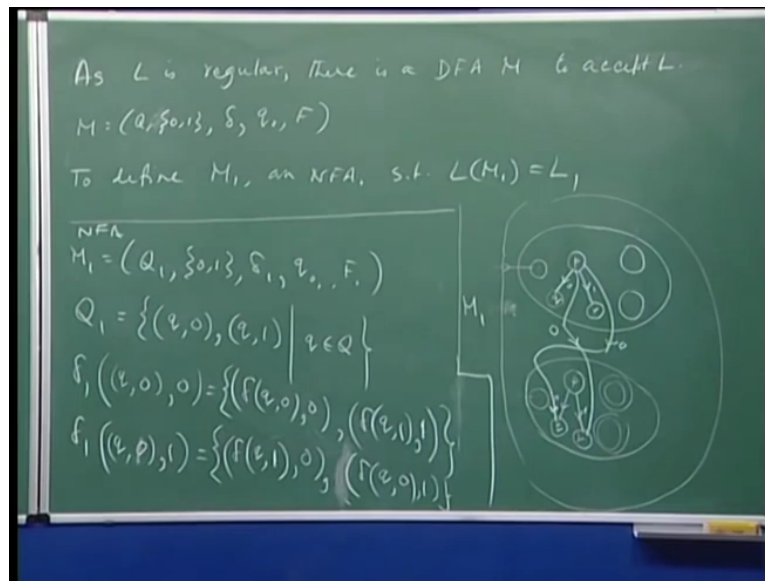 As L is regular, there is a DFA M to accept L.
M = (Q, {0,1}, δ, q₀, F)
To define M₁, an NFA, s.t. L(M₁) = L₁
NFA
M₁ = (Q₁, {0,1}, δ₁, q₀₁, F₁)
Q₁ = {(q,0), (q,1) | q ∈ Q}
δ₁((q,0),0) = {(δ(q,0),0), (δ(q,1),1)}
δ₁((q,0),1) = {(δ(q,1),0), (δ(q,0),1)}
M₁